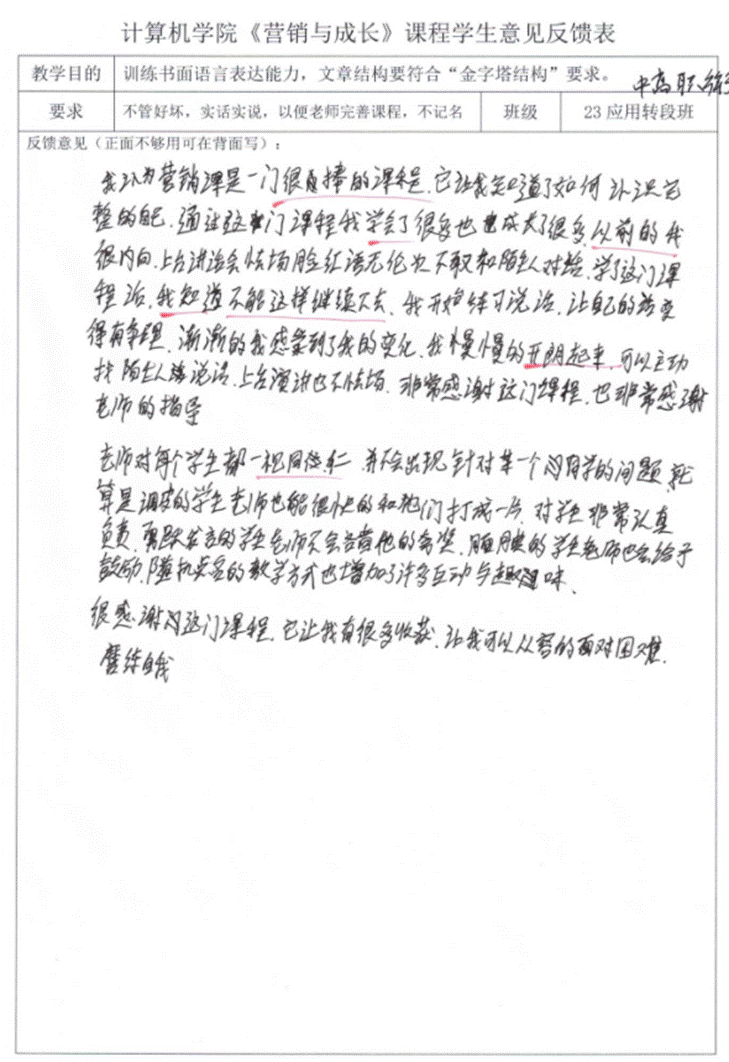 计算机学院《营销与成长》课程学生意见反馈表
教学目的 训练书面语言表达能力，文章结构要符合“金字塔结构”要求。 中高职
要求 不管好坏，实话实说，以便老师完善课程，不记名 班级 23应用转段班
反馈意见（正面不够用可在背面写）：
我认为营销课是一门很棒的课程，它让我知道了如何认识完
整的自己，通过这门课程我学会了很多也成长了很多，以前的我
很内向，上台讲话会怯场脸红语无伦次不敢和陌生人对话，学了这门课
程后，我知道不能这样继续下去，我开始练习说话，让自己的变
得有条理，渐渐的我感案到了我的变化，我慢慢的开朗起来，可以主动
找陌生人说话，上台演讲也不怯场，非常感谢这门课程，也非常感谢
老师的指导
老师对每个学生都一视同仁，并不会出现针对某一个同学的问题，就
算是调皮的学生老师也能很快的和他们打成一片，对学生非常认真
负责，踊跃发言的学生老师不会吝啬他的夸奖，腼腆的学生老师也会给予
鼓励，随机点名的教学方式也增加了许多互动与趣味，
很感谢这门课程，它让我有很多收获，让我可以从容的面对困难，
磨练自我